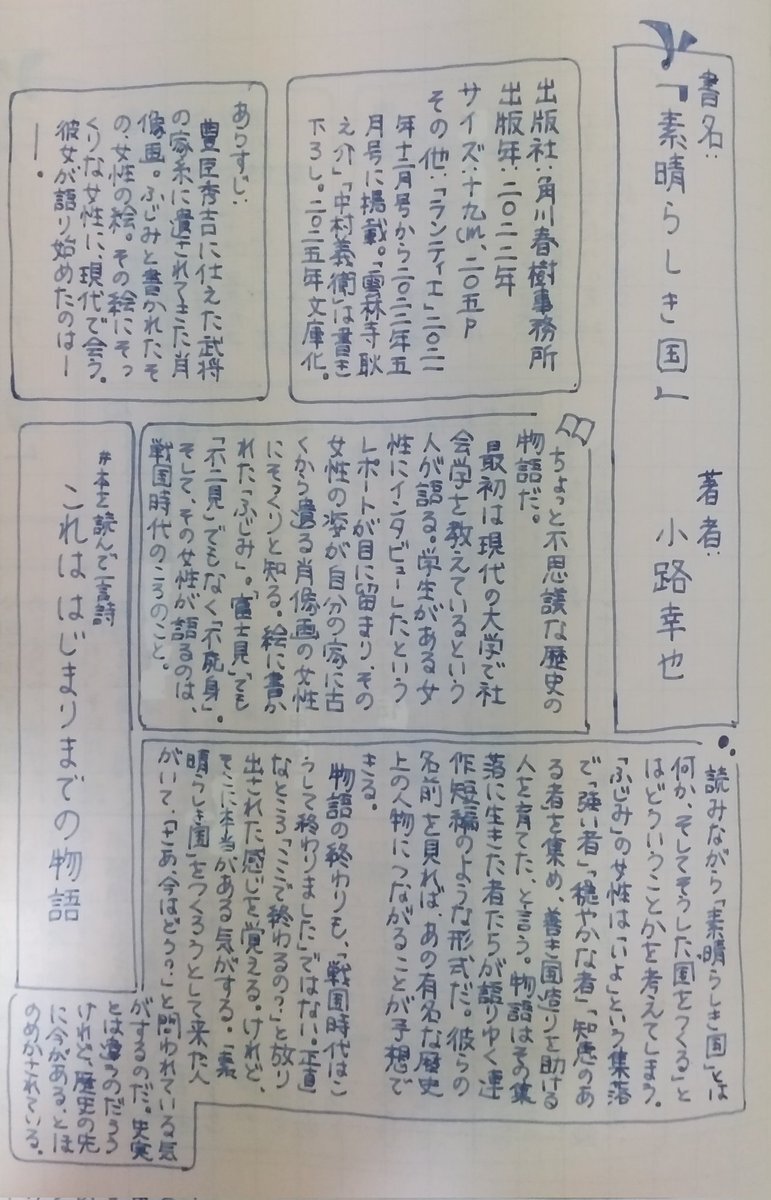 書名:
『素晴らしき国』
著者:
小路幸也
出版社:角川春樹事務所
出版年:二〇二二年
サイズ:十九cm、二〇五P
その他:「ランティエ」二〇二一
年十二月号から二〇二二年五
月号に掲載。「雲林寺耿
之介」「中村義衛」は書き
下ろし。二〇二五年文庫化。
あらすじ:
豊臣秀吉に仕えた武将
の家系に遺されてきた肖
像画。ふじみと書かれたそ
の、女性の絵。その絵にそっ
くりな女性に、現代で会う。
彼女が語り始めたのは―
―。
ちょっと不思議な歴史の
物語だ。
最初は現代の大学で社
会学を教えているという
人が語る。学生がある女
性にインタビューしたという
レポートが目に留まり、その
女性の姿が自分の家に古
くから遺る肖像画の女性
にそっくりと知る。絵に書か
れた「ふじみ」。「富士見」でも
「不二見」でもなく「不死身」。
そして、その女性が語るのは、
戦国時代のころのこと。
#本を読んで一言詩
これは はじまりまでの物語
読みながら「素晴らしき国」とは
何か、そしてそうした国をつくる」と
はどういうことかを考えてしまう。
「ふじみ」の女性は「いよ」という集落
で「強い者」「穏やかな者」「知恵のあ
る者」を集め、善き国造りを助ける
人を育てた、と言う。物語はその集
落に生きた者たちが語りゆく連
作短編のような形式だ。彼らの
名前を見れば、あの有名な歴史
上の人物につながることが予想で
きる。
物語の終わりも、「戦国時代はこ
うして終わりました」ではない。正直
なところ「ここで終わるの?」と放り
出された感じを覚える。けれど、
そこに本当がある気がする。「素
晴らしき国」をつくろうとして来た人
がいて、「さあ、今はどう?」と問われている気
がするのだ。史実
とは違うのだろう
けれど、歴史の先
に今がある、とほ
のめかされている。